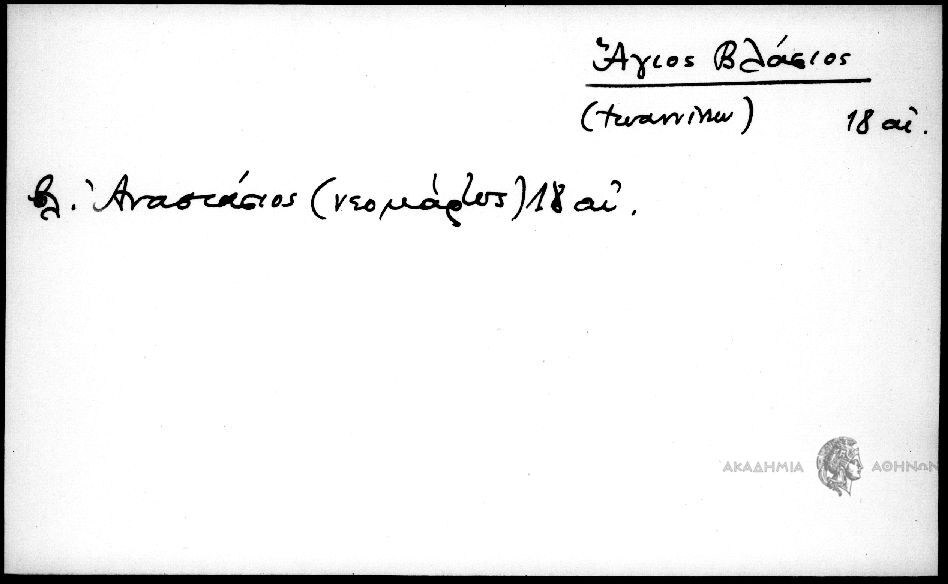 Ἅγιος Βλάσιος
(Ἰωαννίνων) 18 αἰ.
βλ. Ἀναστάσιος (νεομάρτυς) 18 αἰ.
ΑΚΑΔΗΜΙΑ ΑΘΗΝΩΝ